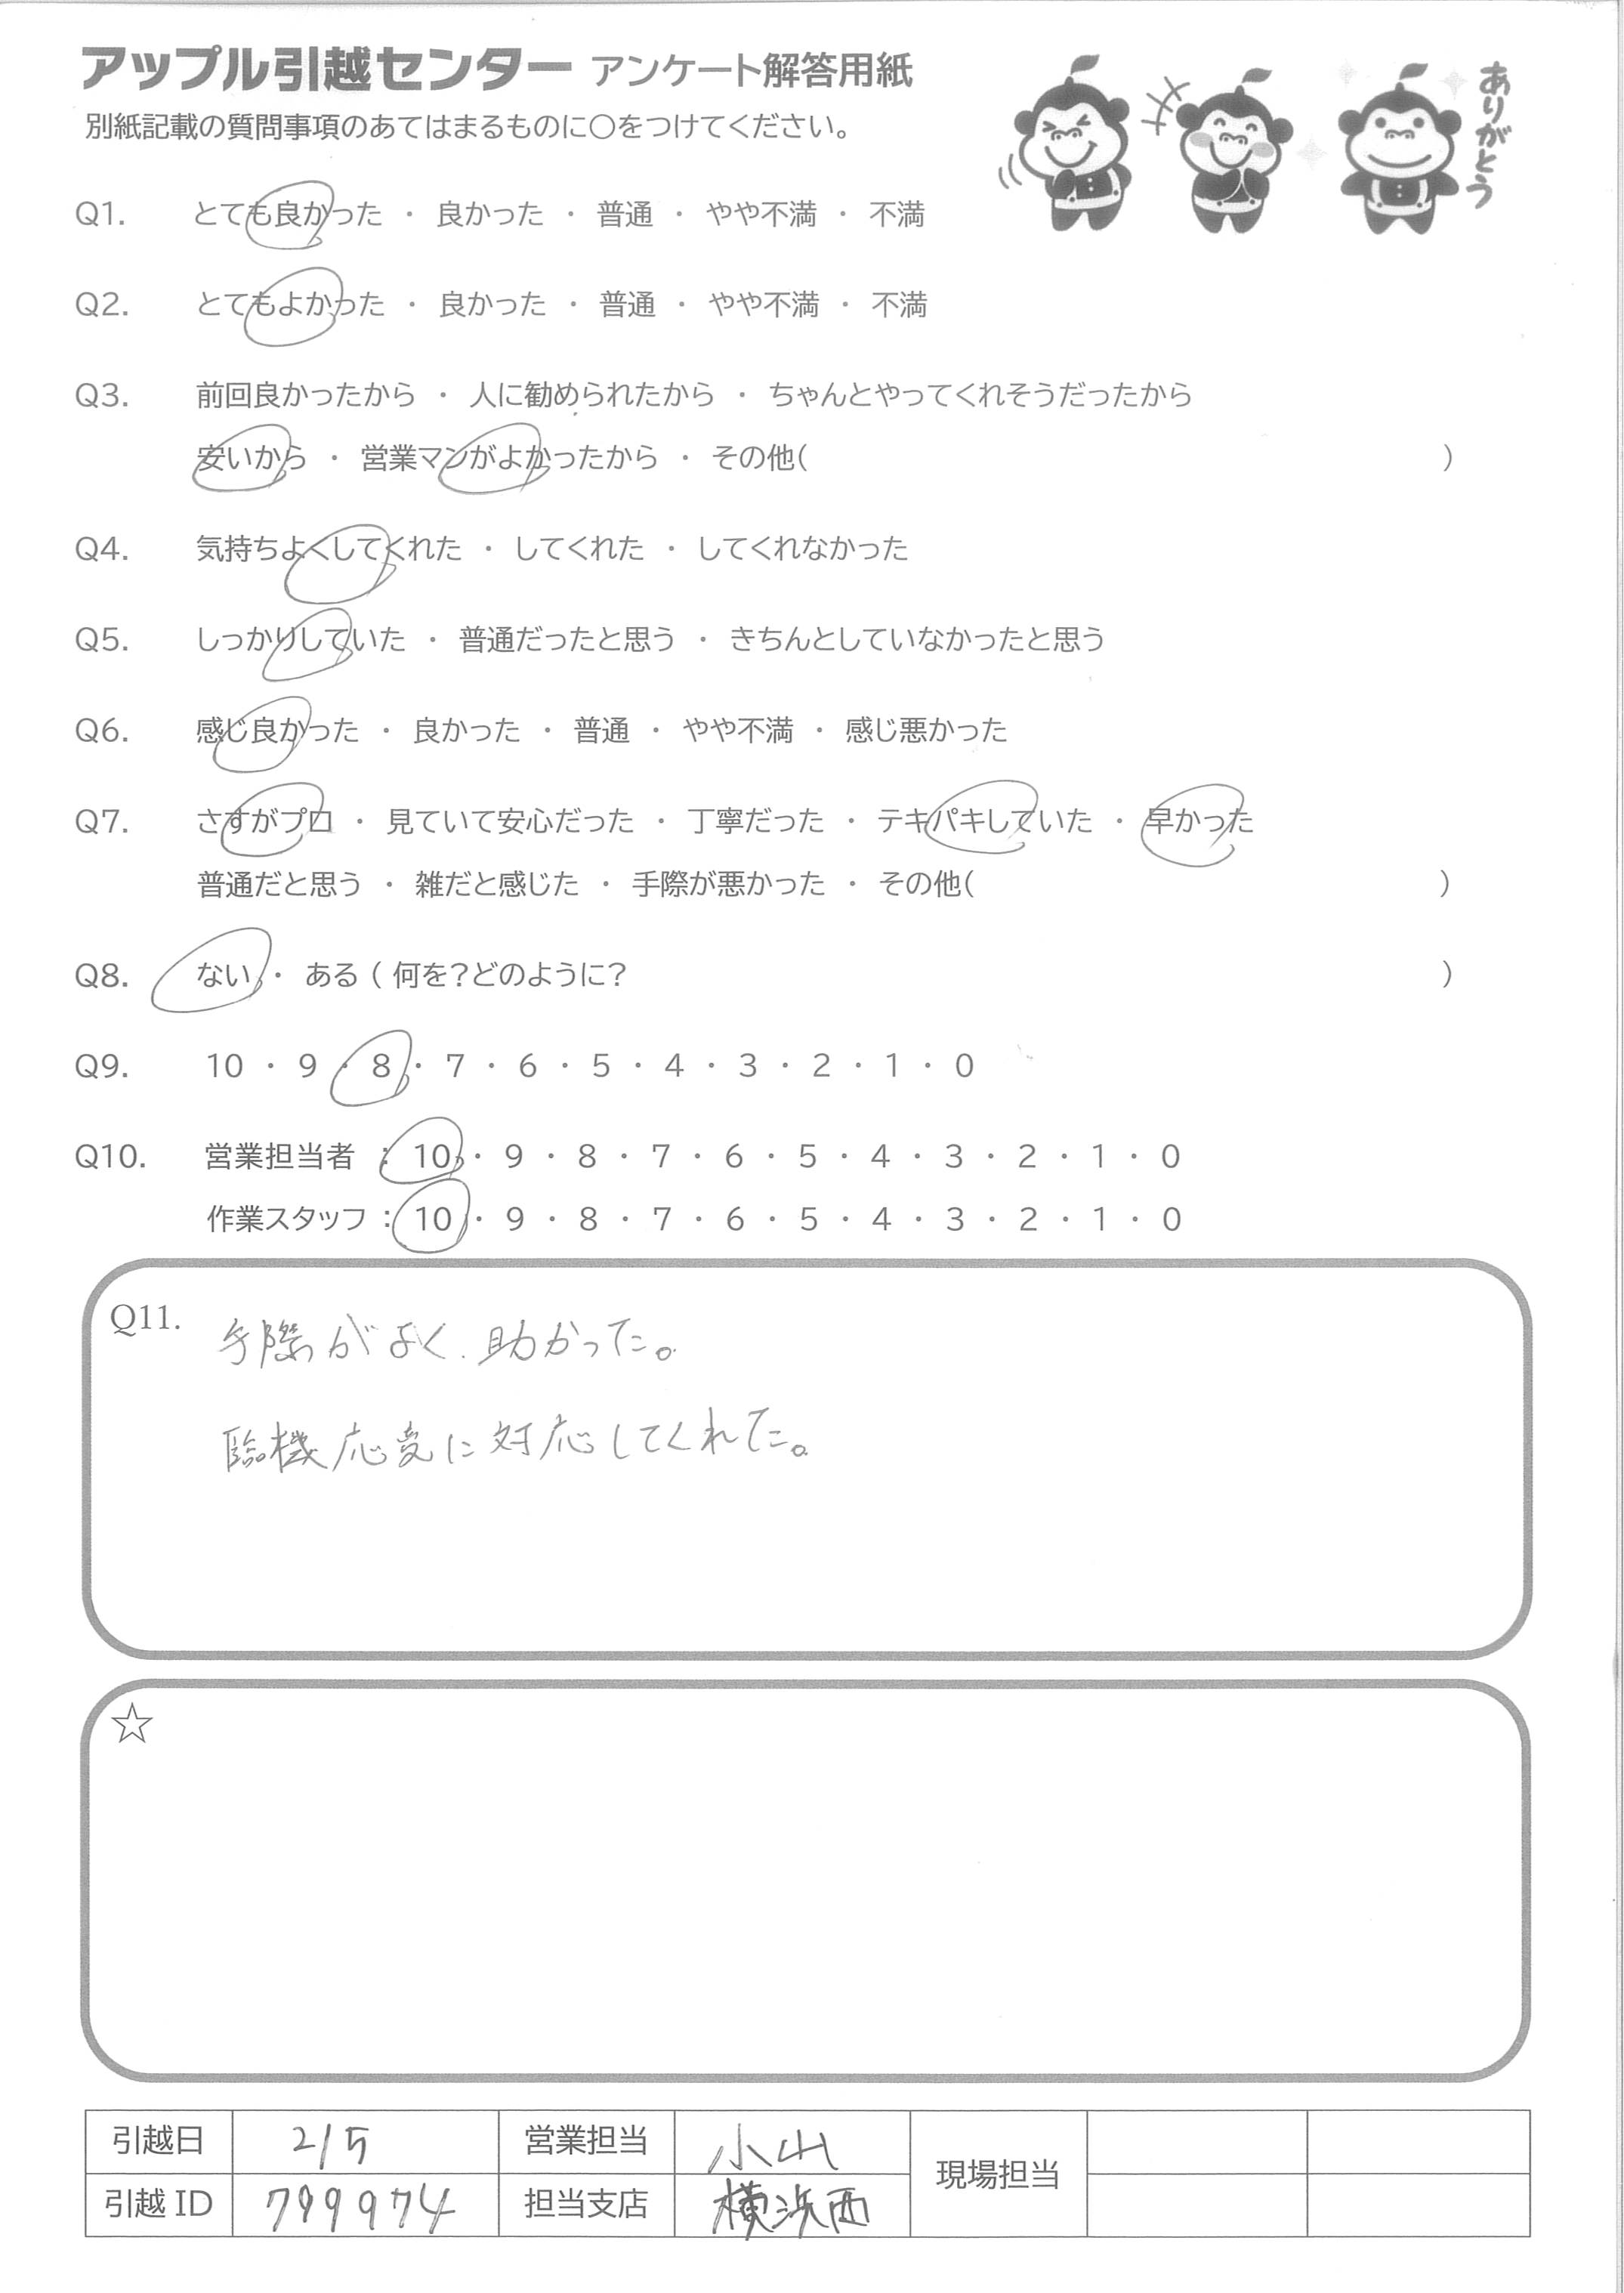 アップル引越センター アンケート解答用紙
別紙記載の質問事項のあてはまるものに○をつけてください。
ありがとう
Q1. とても良かった ・ 良かった ・ 普通 ・ やや不満 ・ 不満
Q2. とてもよかった ・ 良かった ・ 普通 ・ やや不満 ・ 不満
Q3. 前回良かったから ・ 人に勧められたから ・ ちゃんとやってくれそうだったから
安いから ・ 営業マンがよかったから ・ その他( )
Q4. 気持ちよくしてくれた ・ してくれた ・ してくれなかった
Q5. しっかりしていた ・ 普通だったと思う ・ きちんとしていなかったと思う
Q6. 感じ良かった ・ 良かった ・ 普通 ・ やや不満 ・ 感じ悪かった
Q7. さすがプロ ・ 見ていて安心だった ・ 丁寧だった ・ テキパキしていた ・ 早かった
普通だと思う ・ 雑だと感じた ・ 手際が悪かった ・ その他( )
Q8. ない ・ ある ( 何を?どのように? )
Q9. 10 ・ 9 ・ 8 ・ 7 ・ 6 ・ 5 ・ 4 ・ 3 ・ 2 ・ 1 ・ 0
Q10. 営業担当者 : 10 ・ 9 ・ 8 ・ 7 ・ 6 ・ 5 ・ 4 ・ 3 ・ 2 ・ 1 ・ 0
作業スタッフ : 10 ・ 9 ・ 8 ・ 7 ・ 6 ・ 5 ・ 4 ・ 3 ・ 2 ・ 1 ・ 0
Q11. 手際がよく、助かった。
臨機応変に対応してくれた。
☆
引越日 2/5 営業担当 小山 現場担当
引越ID 799974 担当支店 横浜西